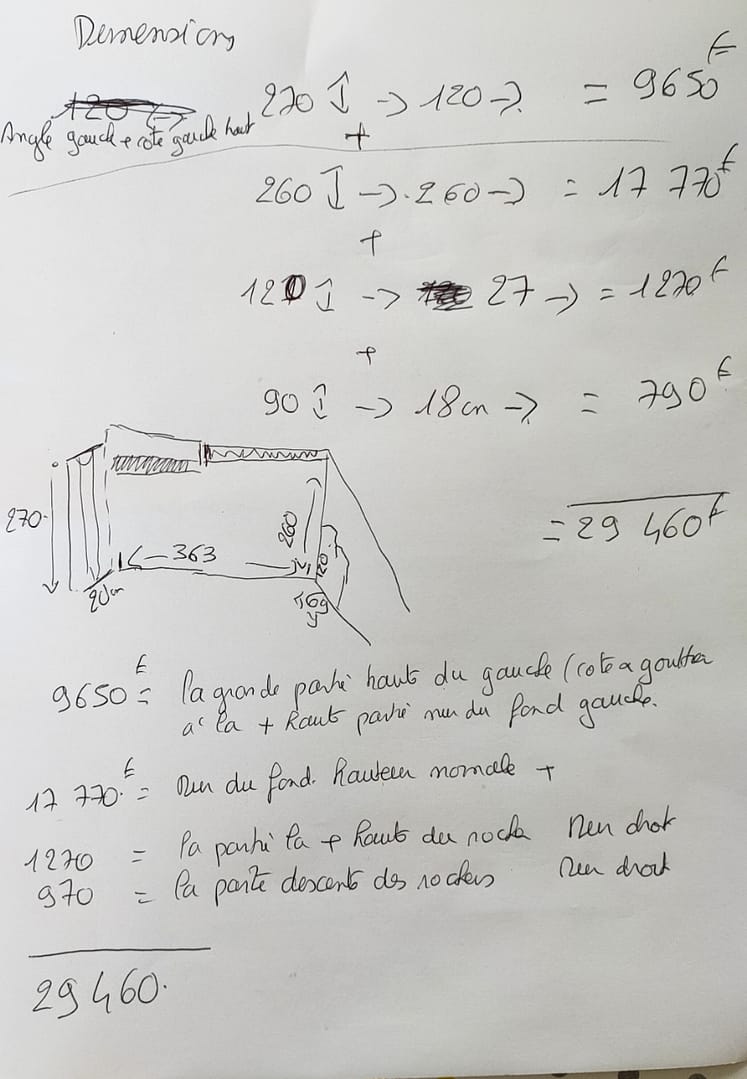 Demensions
270 ↕ -> 120 -> = 9650€
Angle gauch + coté gauche haut
+
260 ↕ -> 260 -> = 17 770€
+
120 ↕ -> 27 -> = 1270€
+
90 ↕ -> 18cm -> = 790€
= 29 460€
270
20cm
363
260
120
9650€ = la grande partie haute du gauche (cote a
a la + haut partie mur du fond gauche.
17 770€ = mur du fond. hauteur normale +
1270 = la partie la + haute du mur droit
970 = la partie des rochers mur droit
29 460.